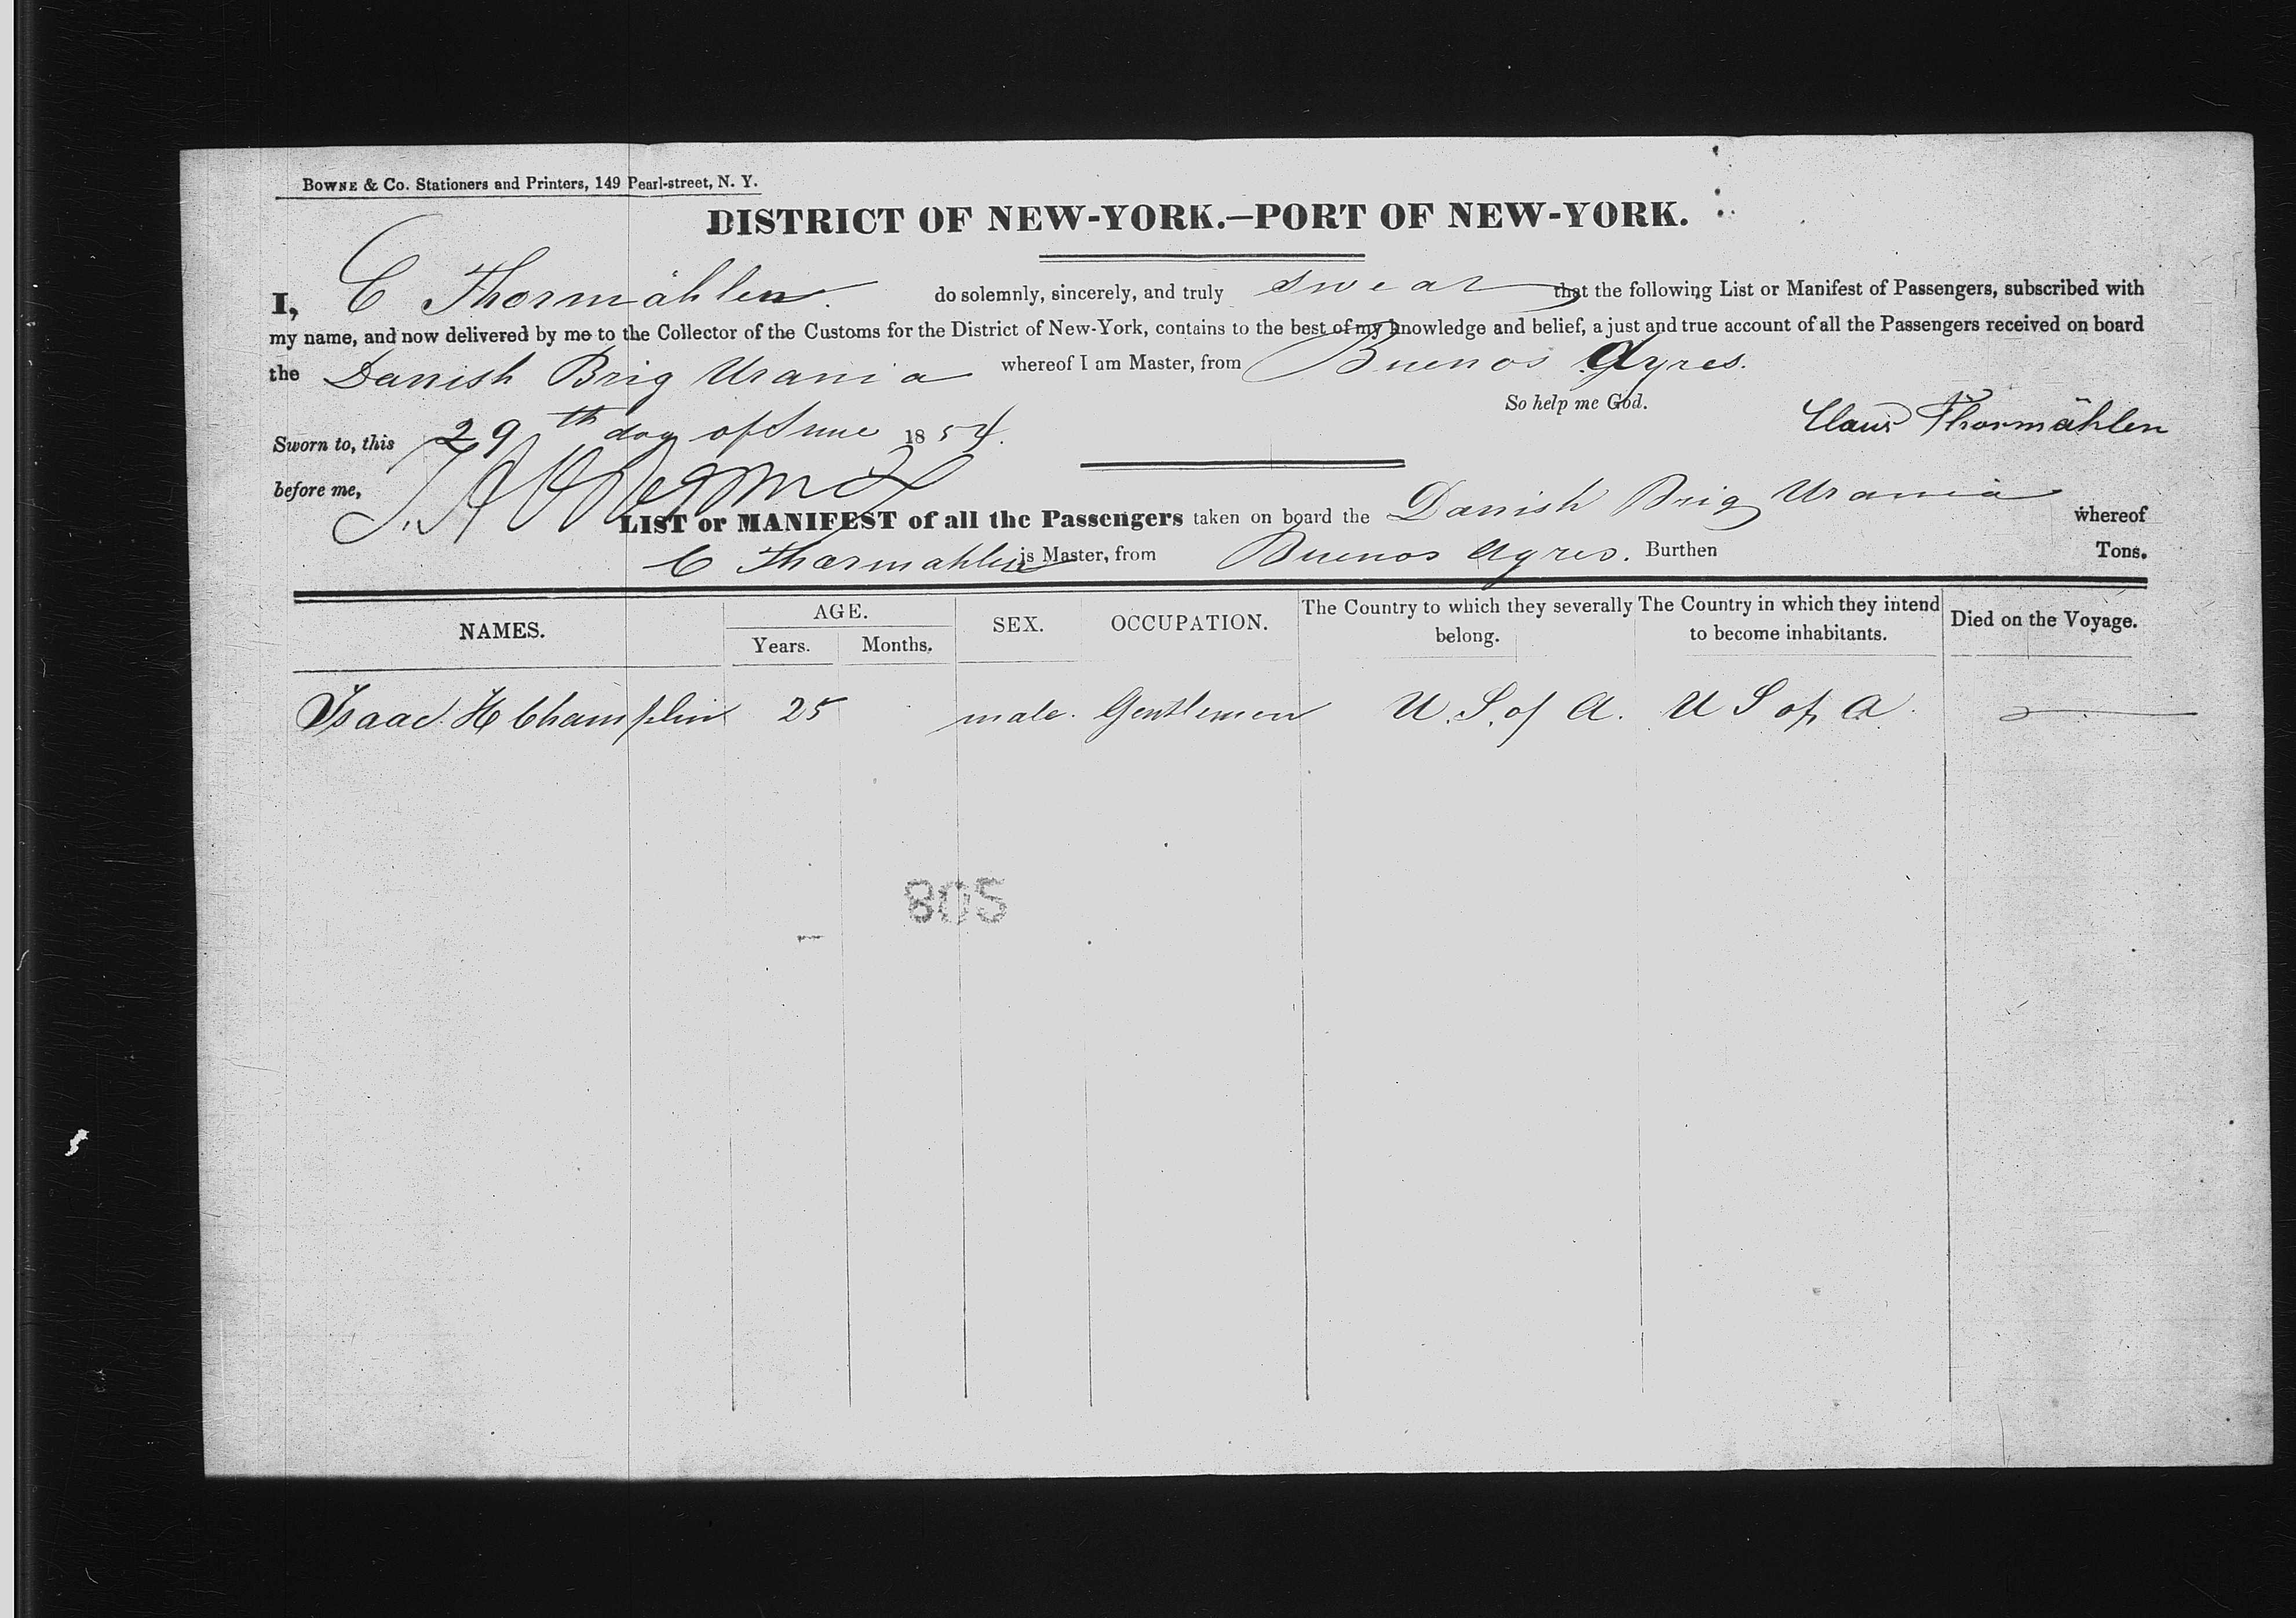 BOWNE & Co. Stationers and Printers, 149 Pearl-street, N. Y.
DISTRICT OF NEW-YORK.—PORT OF NEW-YORK.
I, C Thormählen. do solemnly, sincerely, and truly swear that the following List or Manifest of Passengers, subscribed with
my name, and now delivered by me to the Collector of the Customs for the District of New-York, contains to the best of my knowledge and belief, a just and true account of all the Passengers received on board
the Danish Brig Urania whereof I am Master, from Buenos Ayres.
So help me God.
Claus Thormählen
Sworn to, this 29th day of June 1854.
before me,
LIST or MANIFEST of all the Passengers taken on board the Danish Brig Urania whereof
C Thormahlen is Master, from Buenos Ayres. Burthen Tons.
NAMES. AGE. Years. Months. SEX. OCCUPATION. The Country to which they severally belong. The Country in which they intend to become inhabitants. Died on the Voyage.
Isaac H Champlin 25 male. Gentlemen U. S. of A. U S of A.
805